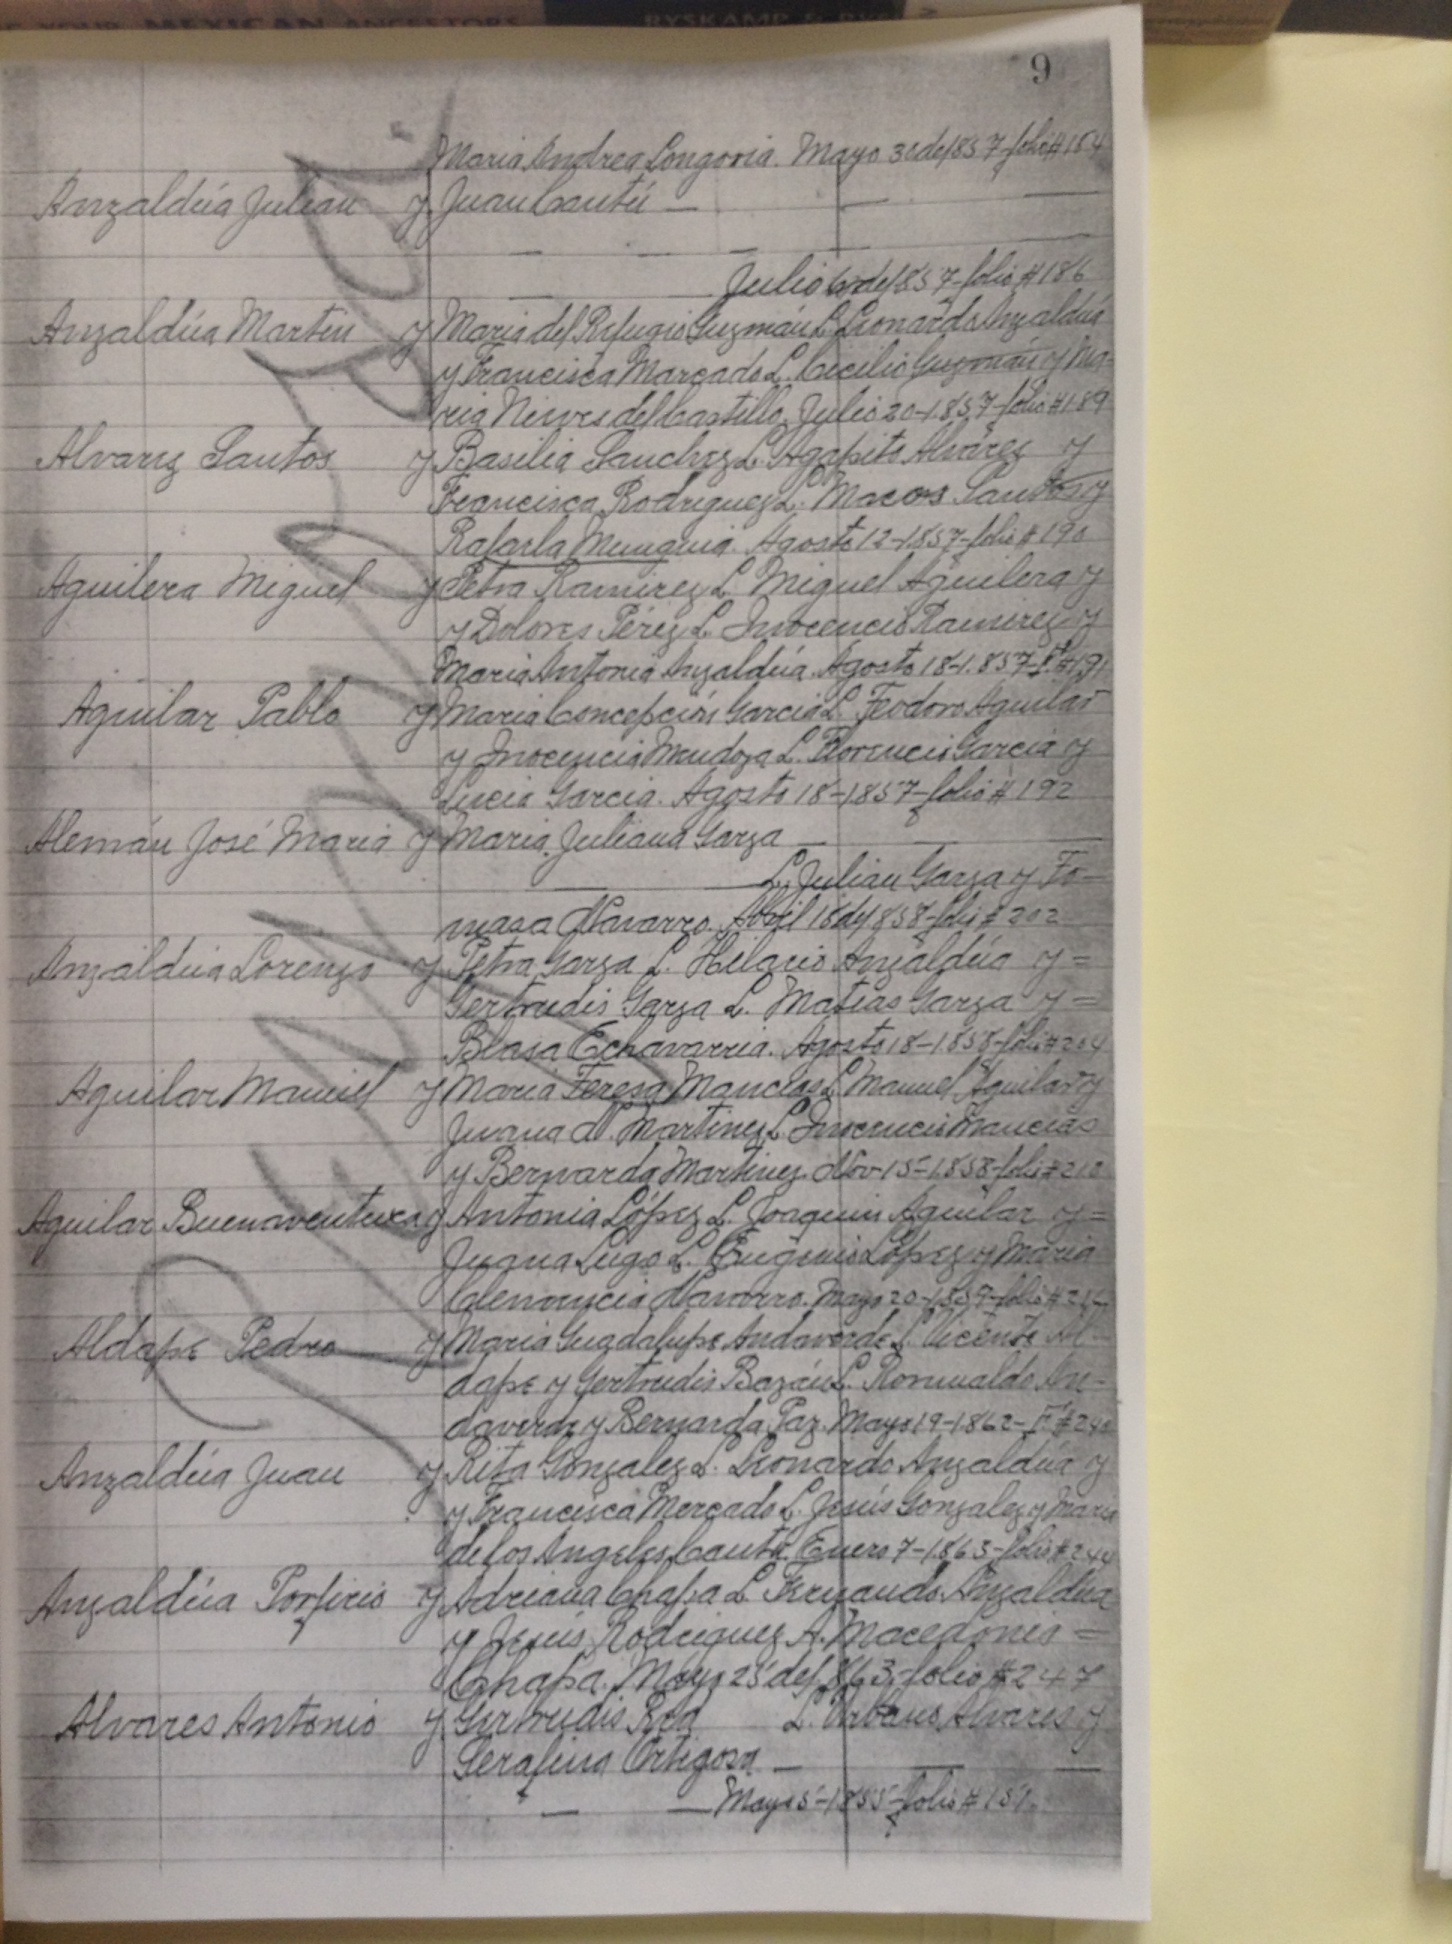 YOUR MEXICAN ANCESTORS RYSKAMP &
9
Maria Andrea Longoria. Mayo 30 de 1857-folio #184
Anzaldúa Julian y Juan Cantú —
Julio de 1857-folio #186
Anzaldúa Martin y Maria del Refugio Guzmán L. Leonardo Anzaldúa
y Francisca Marcado L. Cecilio Guzmán y Ma-
ria Nieves del Castillo. Julio 20-1857-folio #189
Alvarez Santos y Basilia Sanchez L. Agapito Alvárez y
Francisca Rodriguez L. Macos Santos y
Rafaela Munguia. Agosto 12-1857-folio #190
Aguilera Miguel y Petra Ramirez L. Miguel Aguilera y
y Dolores Pérez L. Inocencio Ramirez y
Maria Antonia Anzaldúa. Agosto 18-1.857-F. #191
Aguilar Pablo y Maria Concepción Garcia L. Teodoro Aguilar
y Inocencia Mendoza L. Florencio Garcia y
Lucia Garcia. Agosto 18-1857-folio #192
Alemán José Maria y Maria Juliana Garza
L. Julian Garza y To-
masa Navarro. Abril 18 de 1858-folio #202
Anzaldúa Lorenzo y Petra Garza L. Hilario Anzaldúa y =
Gertrudis Garza L. Matias Garza y =
Blasa Echavarria. Agosto 18-1.858-folio #204
Aguilar Manuel y Maria Teresa Mancias L. Manuel Aguilar y
Juana N. Martinez L. Inocencio Mancias
y Bernarda Martinez. Nov-15-1.858-folio #212
Aguilar Buenaventura y Antonia López L. Joaquin Aguilar y =
Juana Lugo L. Eugenio López y Maria
Navarro. Mayo 20-1859-folio
Aldape Pedro y Maria Guadalupe Andaverde L. Vicente Al-
dape y Gertrudis Bazán L. Romualdo An-
daverde y Bernarda Paz. Mayo 19-1862-F. #240
Anzaldúa Juan y Rita Gonzalez L. Leonardo Anzaldúa y
y Francisca Mercado L. Jesús Gonzalez y Maria
de los Angeles Cantú. Enero 7-1.863-folio #244
Anzaldúa Porfirio y Adriana Chapa L. Fernando Anzaldúa
y Jesús Rodriguez A. Macedonio =
Chapa. Mayo 25 de 1863-folio #247
Alvares Antonio y Gertrudis Rea L. Urbano Alvares y
Serafina Ortigosa —
Mayo 5-1855-folio